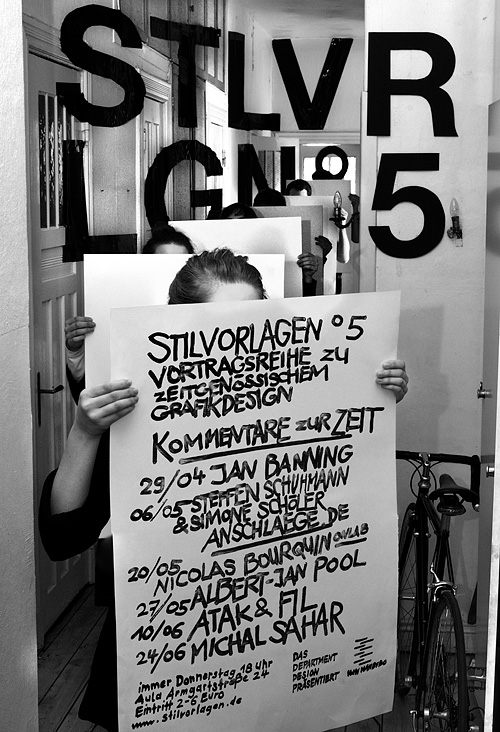 STLVR
LGN°5
STILVORLAGEN °5
VORTRAGSREIHE ZU
ZEITGENÖSSISCHEM
GRAFIKDESIGN
KOMMENTARE ZUR ZEIT
29/04 JAN BANNING
06/05 STEFFEN SCHUHMANN
& SIMONE SCHÖLER
ANSCHLAEGE.DE
20/05
NICOLAS BOURQUIN ONLAB
27/05 ALBERT-JAN POOL
10/06 ATAK & FIL
24/06 MICHAL SAHAR
immer Donnerstag 18 Uhr
Aula Armgartstraße 24
Eintritt 2-6 Euro
www.stilvorlagen.de
DAS
DEPARTMENT
DESIGN
PRÄSENTIERT
HAW HAMBURG